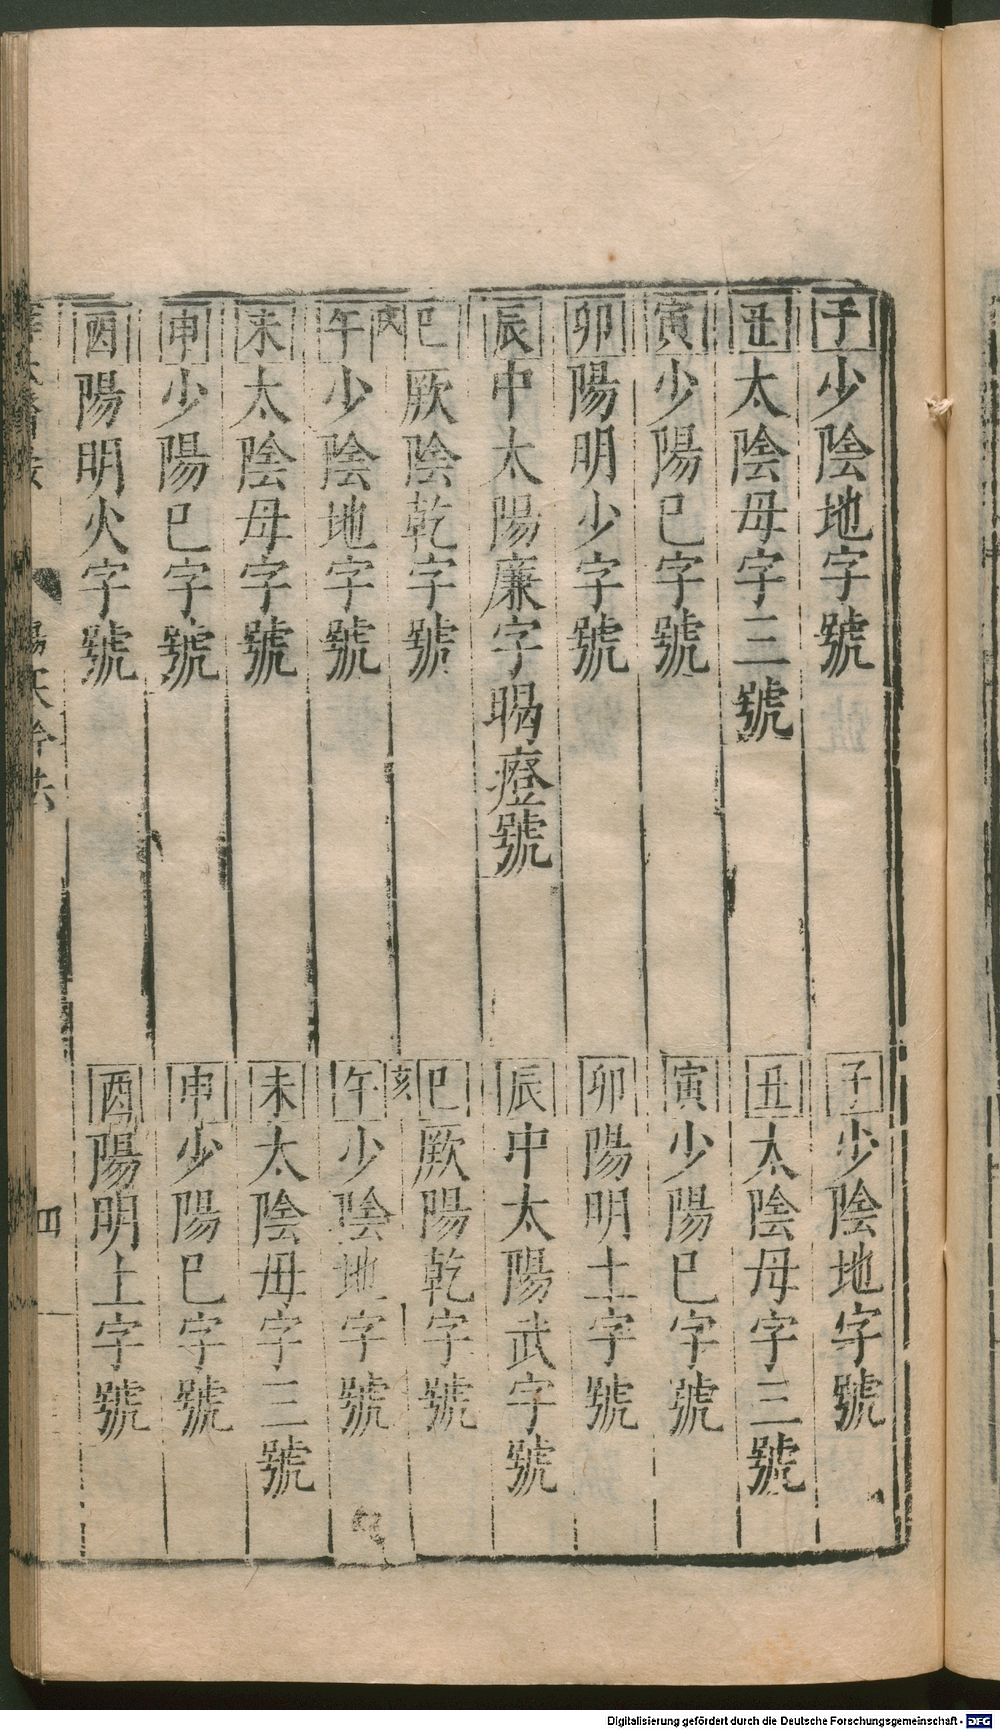 子少陰地字號
丑太陰母字三號
寅少陽巳字號
卯陽明少字號
辰中太陽廉字暍瘞號
巳厥陰乾字號
戌
午少陰地字號
未太陰母字號
申少陽巳字號
酉陽明火字號
子少陰地字號
丑太陰母字三號
寅少陽巳字號
卯陽明土字號
辰中太陽武字號
巳厥陽乾字號
亥
午少陰地字號
未太陰毋字三號
申少陽巳字號
酉陽明上字號
四
Digitalisierung gefördert durch die Deutsche Forschungsgemeinschaft - DFG